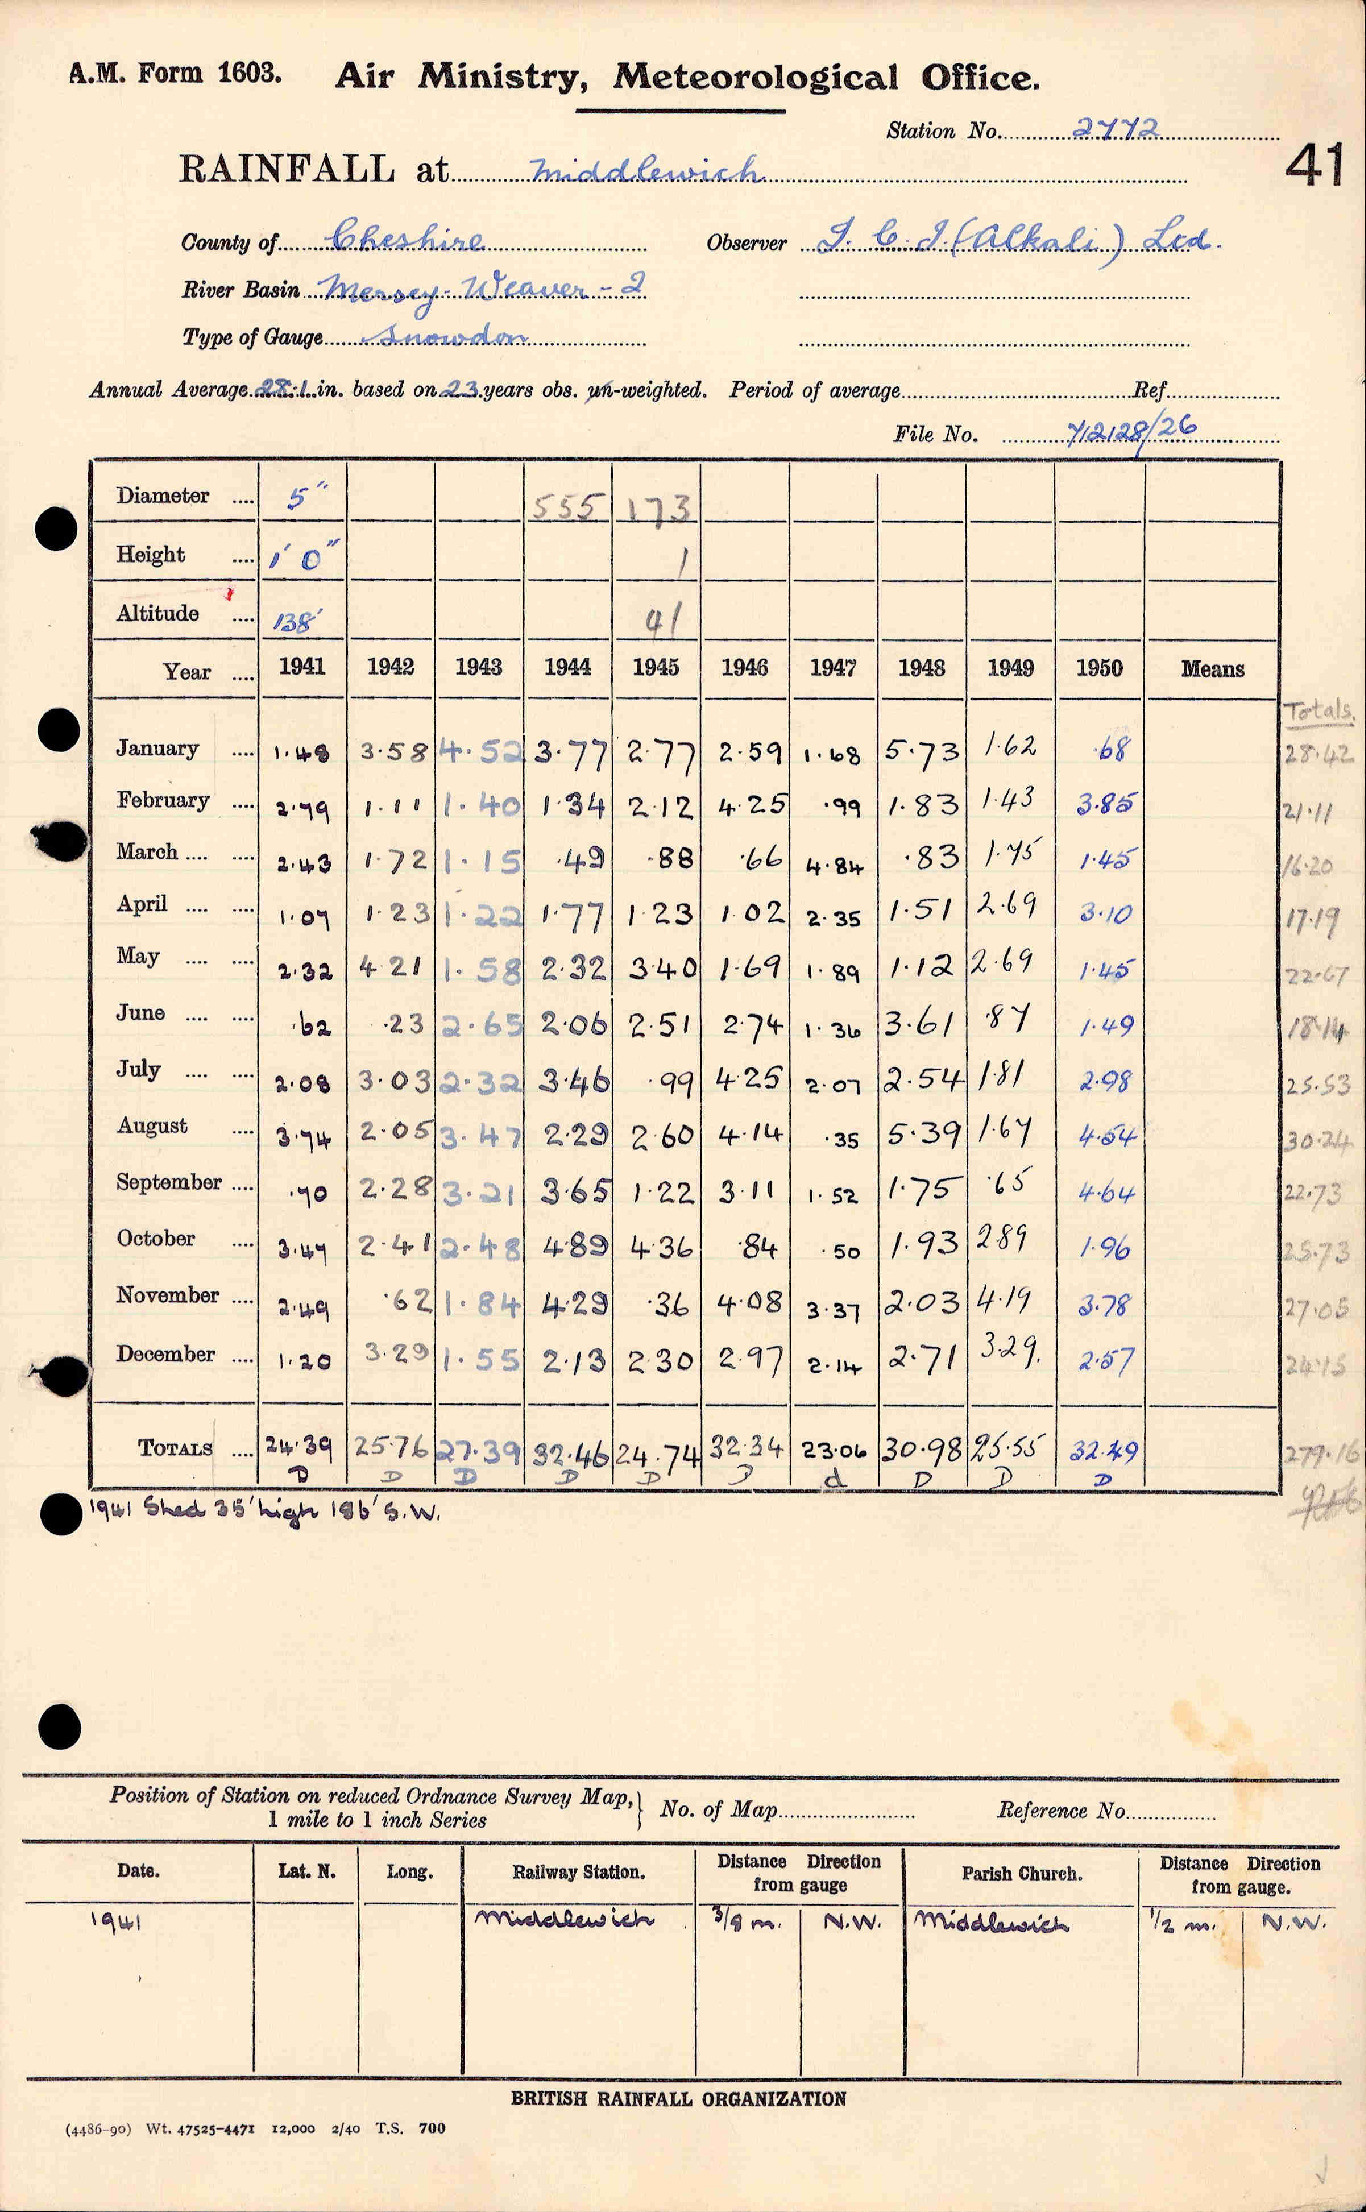 A.M. Form 1603. Air Ministry, Meteorological Office.
Station No. 2772
41
RAINFALL at Middlewich
County of Cheshire Observer I. C. I. (Alkali) Ltd.
River Basin Mersey-Weaver-2
Type of Gauge Snowdon
Annual Average 28.1 in. based on 23 years obs. un-weighted. Period of average Ref.
File No. 712128/26
Diameter .... 5" 555 173
Height .... 1' 0" 1
Altitude .... 138' 41
Year .... 1941 1942 1943 1944 1945 1946 1947 1948 1949 1950 Means
Totals.
January .... 1.48 3.58 4.52 3.77 2.77 2.59 1.68 5.73 1.62 .68 28.42
February .... 2.79 1.11 1.40 1.34 2.12 4.25 .99 1.83 1.43 3.85 21.11
March .... .... 2.43 1.72 1.15 .49 .88 .66 4.84 .83 1.75 1.45 16.20
April .... .... 1.07 1.23 1.22 1.77 1.23 1.02 2.35 1.51 2.69 3.10 17.19
May .... .... 2.32 4.21 1.58 2.32 3.40 1.69 1.89 1.12 2.69 1.45 22.67
June .... .... .62 .23 2.65 2.06 2.51 2.74 1.36 3.61 .87 1.49 18.14
July .... .... 2.08 3.03 2.32 3.46 .99 4.25 2.07 2.54 1.81 2.98 25.53
August .... 3.74 2.05 3.47 2.29 2.60 4.14 .35 5.39 1.67 4.54 30.24
September .... .70 2.28 3.21 3.65 1.22 3.11 1.52 1.75 .65 4.64 22.73
October .... 3.47 2.41 2.48 4.89 4.36 .84 .50 1.93 2.89 1.96 25.73
November .... 2.49 .62 1.84 4.29 .36 4.08 3.37 2.03 4.19 3.78 27.05
December .... 1.20 3.29 1.55 2.13 2.30 2.97 2.14 2.71 3.29. 2.57 24.15
TOTALS .... 24.39 25.76 27.39 32.46 24.74 32.34 23.06 30.98 25.55 32.49 279.16
D D D D D D d D D D
1941 Shed 35' high 186' S.W.
Position of Station on reduced Ordnance Survey Map, 1 mile to 1 inch Series } No. of Map Reference No.
Date. Lat. N. Long. Railway Station. Distance Direction from gauge Parish Church. Distance Direction from gauge.
1941 Middlewich 3/8 m. N.W. Middlewich 1/2 m. N.W.
BRITISH RAINFALL ORGANIZATION
(4486-90) Wt. 47525-4471 12,000 2/40 T.S. 700